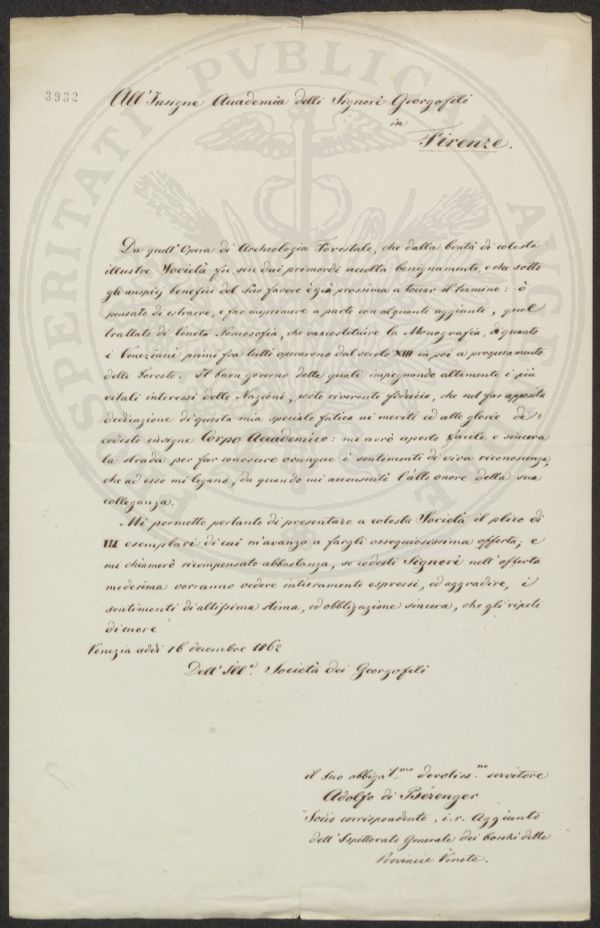 3932
All' Insigne Accademia delli Signori Georgofili
in
Firenze.
Da quell' Opera di Archeologia Forestale, che dalla bontà di cotesta
illustre Società fù sin dai primordi accolta benignamente, e che sotto
gli auspicj benefici del suo favore è già prossima a toccar il termine: ò
pensato di estrarre, e far imprimere a parte con alquante aggiunte, quel
trattato di Veneta Nomosofia, che va costituire la Monografia, di quanto
i Veneziani primi fra tutti operarono dal secolo XIII in poi a prosperamento
delle Foreste. Il buon governo delle quali impegnando altamente i più
vitali interessi delle Nazioni, porto riverente fiducia, che nel far apposita
dedicazione di questa mia speciale fatica ai meriti ed alle glorie di
codesto insigne Corpo Accademico: mi avrò aperto facile e sincera
la strada per far conoscere ovunque i sentimenti di viva riconoscenza,
che ad esso mi legano, da quando mi acconsentì l'alto onore della sua
colleganza.
Mi permetto pertanto di presentare a cotesta Società il plico di
III esemplari di cui m'avanzo a fargli ossequiosissima offerta; e
mi chiamerò ricompensato abbastanza, se codesti Signori nell' offerta
medesima vorranno vedere intieramente espressi, ed aggradire, i
sentimenti di altissima stima, ed obbligazione sincera, che gli ripete
di cuore
Venezia addì 16 decembre 1862
Dell' Ill.e Società dei Georgofili
il suo obbligat.mo devotiss.mo servitore
Adolfo di Bérenger
Socio corrispondente, i. r. Aggiunto
dell' Ispettorato Generale dei boschi delle
Provincie Venete.
PROSPERITATI PUBLICAE AUGENDAE